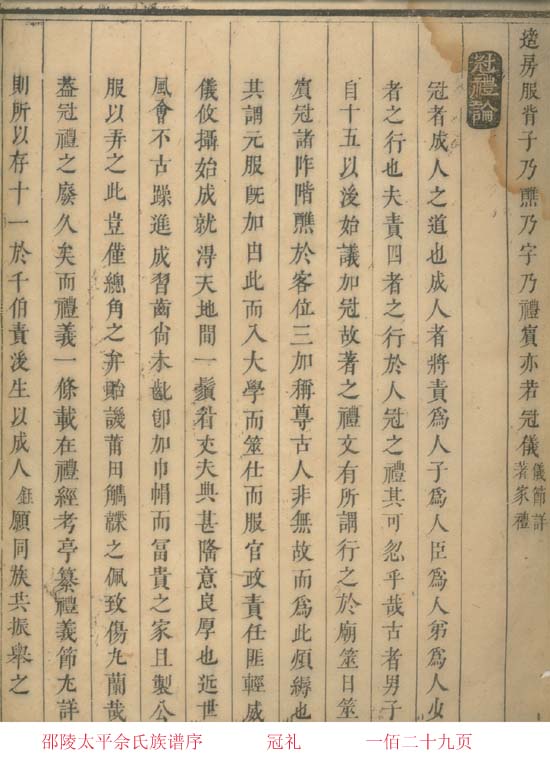 適房服背子乃醮乃字乃禮賓亦若冠儀儀節詳著家禮
冠禮論
冠者成人之道也成人者將責為人子為人臣為人弟為人少
者之行也夫責四者之行於人冠之禮其可忽乎哉古者男子
自十五以後始議加冠故著之禮文有所謂行之於廟筮日筮
賓冠諸阼階醮於客位三加稱尊古人非無故而為此煩縟也
其謂元服既加由此而入大學而筮仕而服官政責任匪輕威
儀攸攝始成就得天地間一鬚眉丈夫典甚隆意良厚也近世
風會不古躁進成習齒尚未齔即加巾帽而富貴之家且製公
服以弄之此豈僅總角之弁貽譏莆田觿韘之佩致傷九蘭哉
葢冠禮之廢久矣而禮義一條載在禮經考亭纂禮義節尤詳
則所以存十一於千伯責後生以成人鈺願同族共振舉之
邵陵太平余氏族谱序 冠礼 一佰二十九页